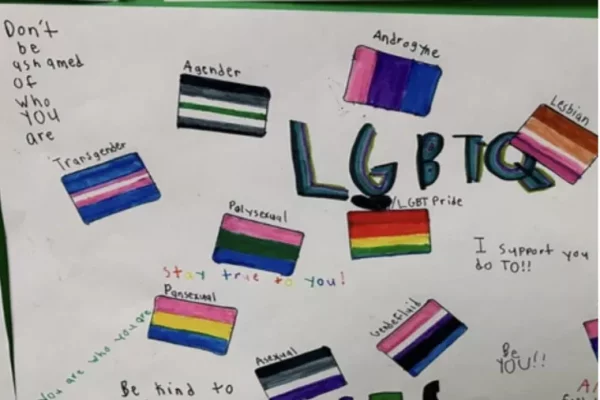 Don't
be
ashamed
of
who
YOU
are
Androgyne
Agender
Lesbian
LGBTQ
Transgender
Polysexual
/LGBT Pride
I support you
do TO!!
stay true to you!
Pansexual
Genderfluid
You are who you are
Be
YOU!!
Asexual
Be kind to